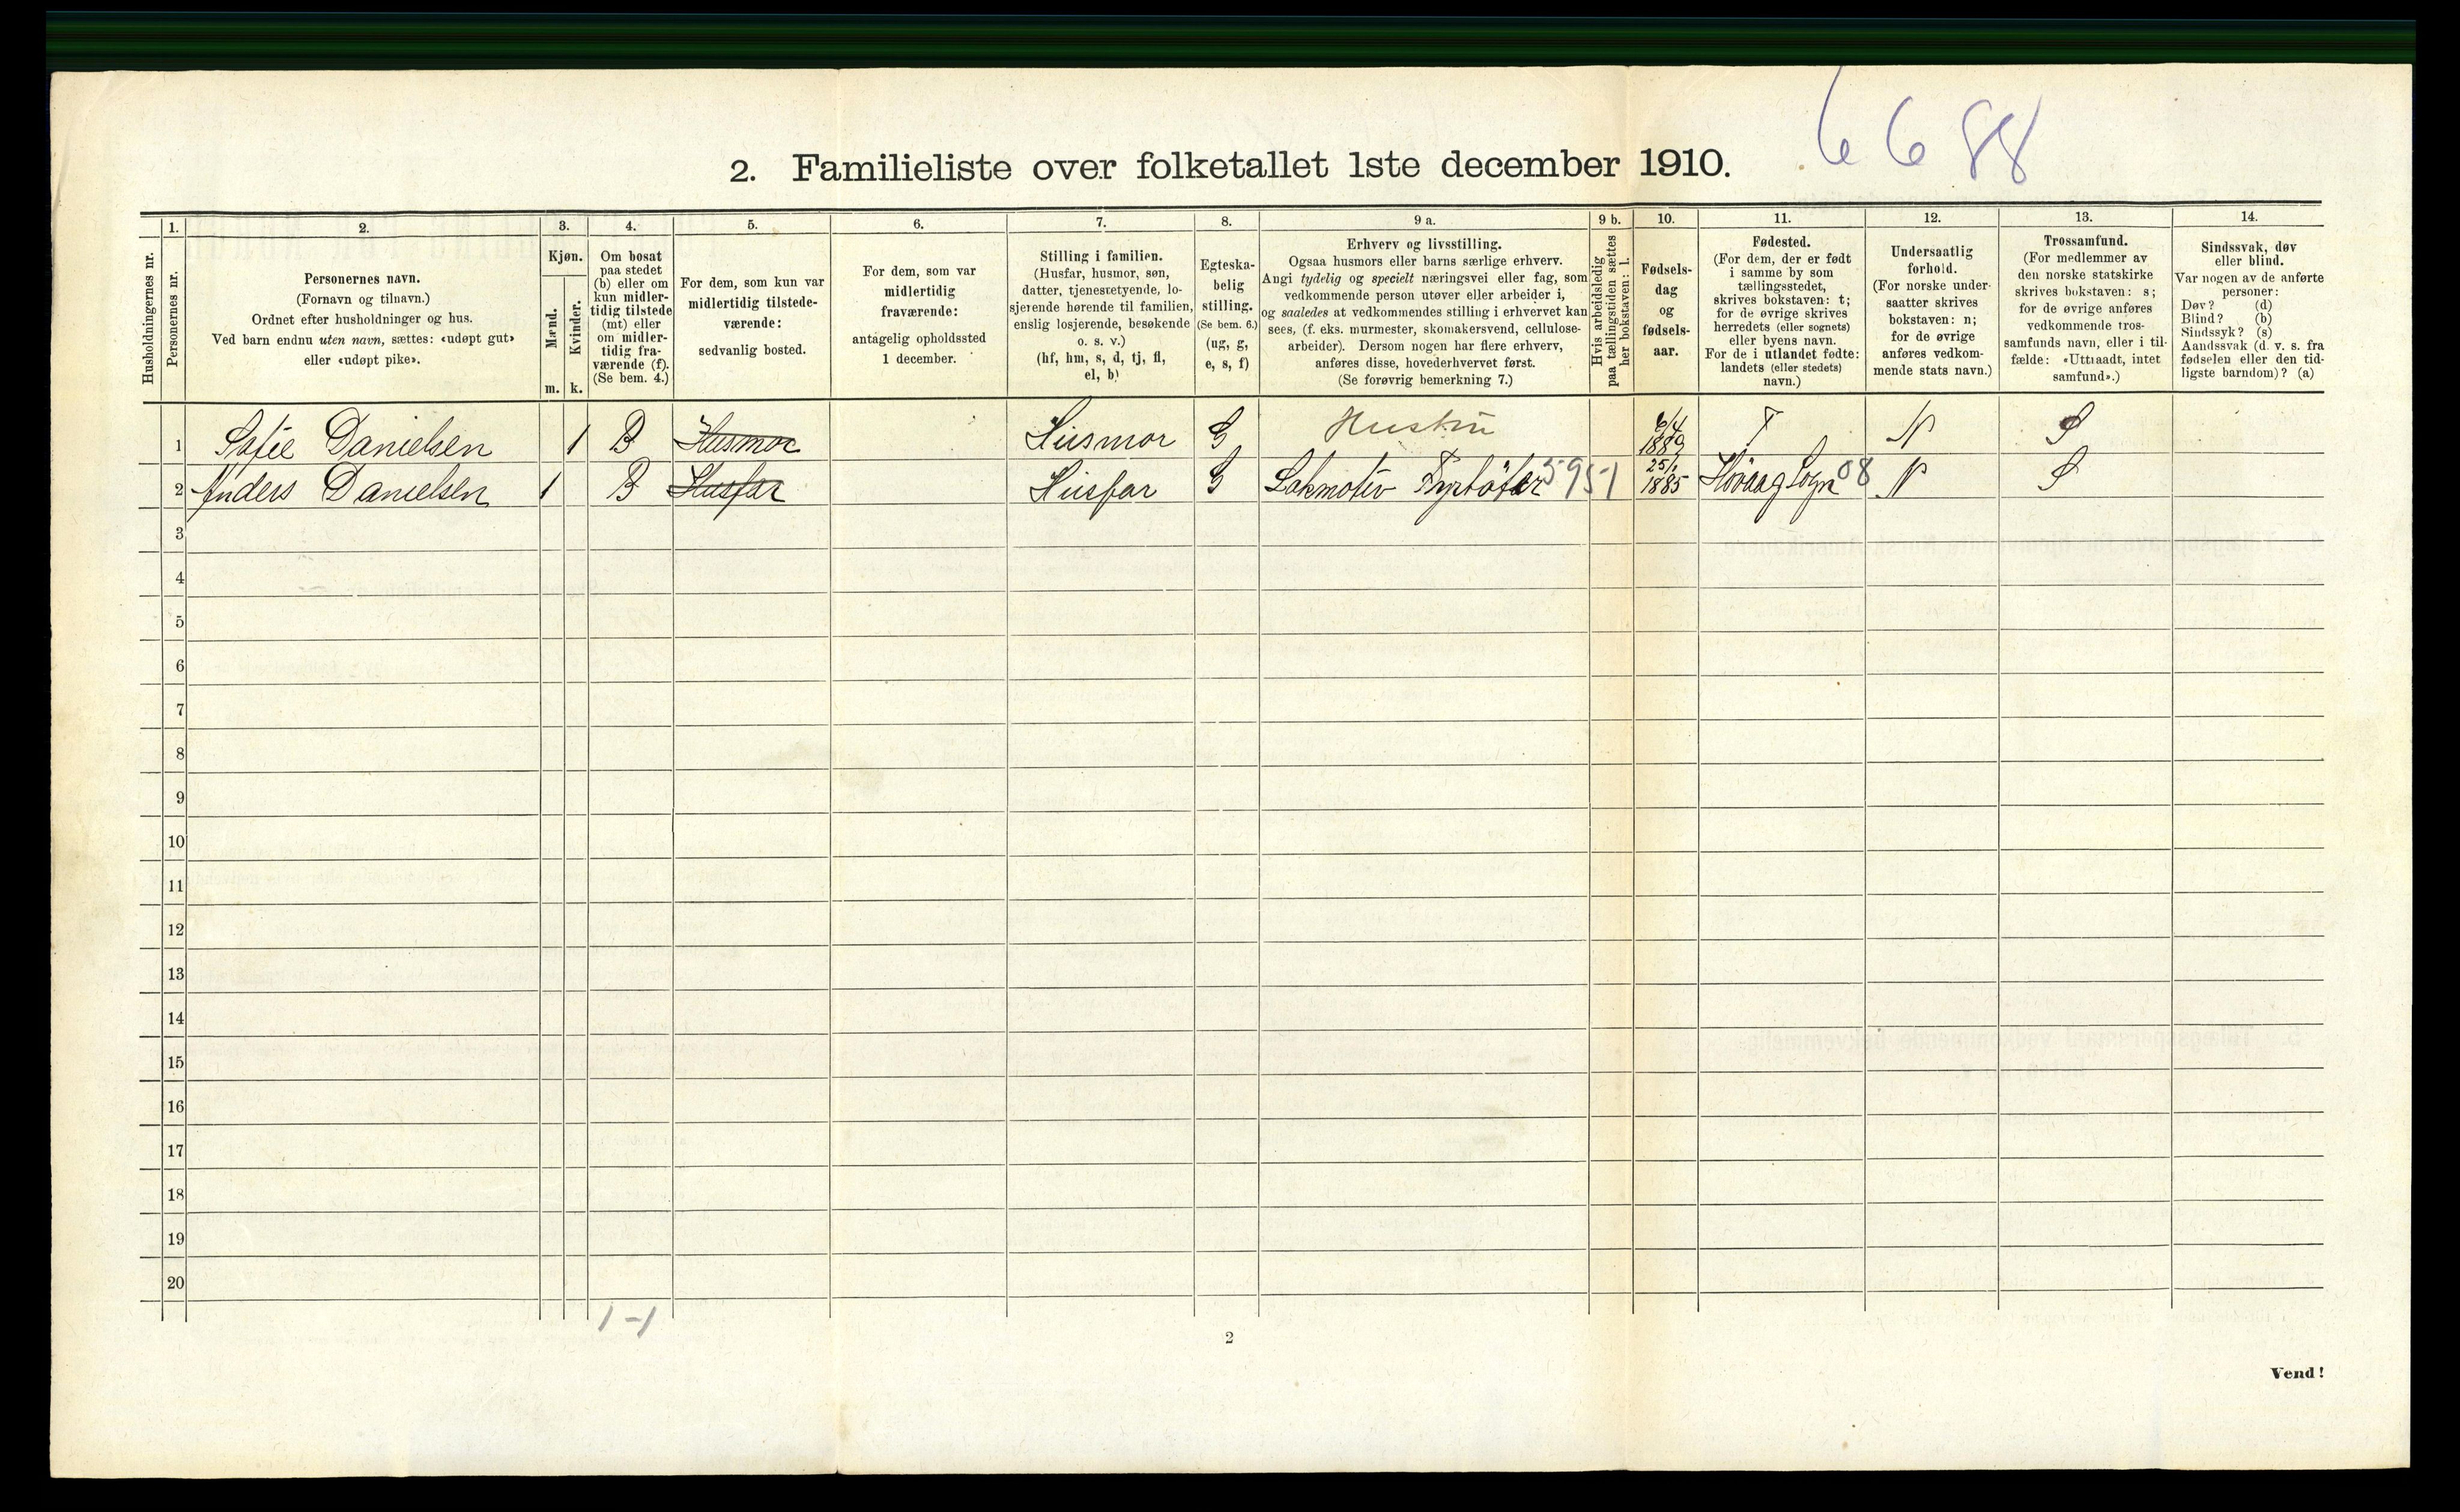 6688
2. Familieliste over folketallet 1ste december 1910.
1. 2. 3. 4. 5. 6. 7. 8. 9 a. 9 b. 10. 11. 12. 13. 14.
Husholdningernes nr.
Personernes nr.
Personernes navn.
(Fornavn og tilnavn.)
Ordnet efter husholdninger og hus.
Ved barn endnu uten navn, sættes: «udøpt gut»
eller «udøpt pike».
Kjøn.
Mænd.
Kvinder.
m. k.
Om bosat
paa stedet
(b) eller om
kun midler-
tidig tilstede
(mt) eller
om midler-
tidig fra-
værende (f).
(Se bem. 4.)
For dem, som kun var
midlertidig tilstede-
værende:
sedvanlig bosted.
For dem, som var
midlertidig
fraværende:
antagelig opholdssted
1 december.
Stilling i familien.
(Husfar, husmor, søn,
datter, tjenestetyende, lo-
sjerende hørende til familien,
enslig losjerende, besøkende
o. s. v.)
(hf, hm, s, d, tj, fl,
el, b)
Egteska-
belig
stilling.
(Se bem. 6.)
(ug, g,
e, s, f)
Erhverv og livsstilling.
Ogsaa husmors eller barns særlige erhverv.
Angi tydelig og specielt næringsvei eller fag, som
vedkommende person utøver eller arbeider i,
og saaledes at vedkommendes stilling i erhvervet kan
sees, (f. eks. murmester, skomakersvend, cellulose-
arbeider). Dersom nogen har flere erhverv,
anføres disse, hovederhvervet først.
(Se forøvrig bemerkning 7.)
Hvis arbeidsledig
paa tællingstiden sættes
her bokstaven: l.
Fødsels-
dag
og
fødsels-
aar.
Fødested.
(For dem, der er født
i samme by som
tællingsstedet,
skrives bokstaven: t;
for de øvrige skrives
herredets (eller sognets)
eller byens navn.
For de i utlandet fødte:
landets (eller stedets)
navn.)
Undersaatlig
forhold.
(For norske under-
saatter skrives
bokstaven: n;
for de øvrige
anføres vedkom-
mende stats navn.)
Trossamfund.
(For medlemmer av
den norske statskirke
skrives bokstaven: s;
for de øvrige anføres
vedkommende tros-
samfunds navn, eller i til-
fælde: «Uttraadt, intet
samfund».)
Sindssvak, døv
eller blind.
Var nogen av de anførte
personer:
Døv? (d)
Blind? (b)
Sindssyk? (s)
Aandssvak (d. v. s. fra
fødselen eller den tid-
ligste barndom)? (a)
1 Sofie Danielsen 1 B Husmor Husmor G Hustru 6/4 1889 T N S
2 Anders Danielsen 1 B Husfar Husfar G Lokmotiv Fyrbøter 5951 25/1 1885 Høvaag Sogn 08 N S
3
4
5
6
7
8
9
10
11
12
13
14
15
16
17
18
19
20
1-1
2
Vend!